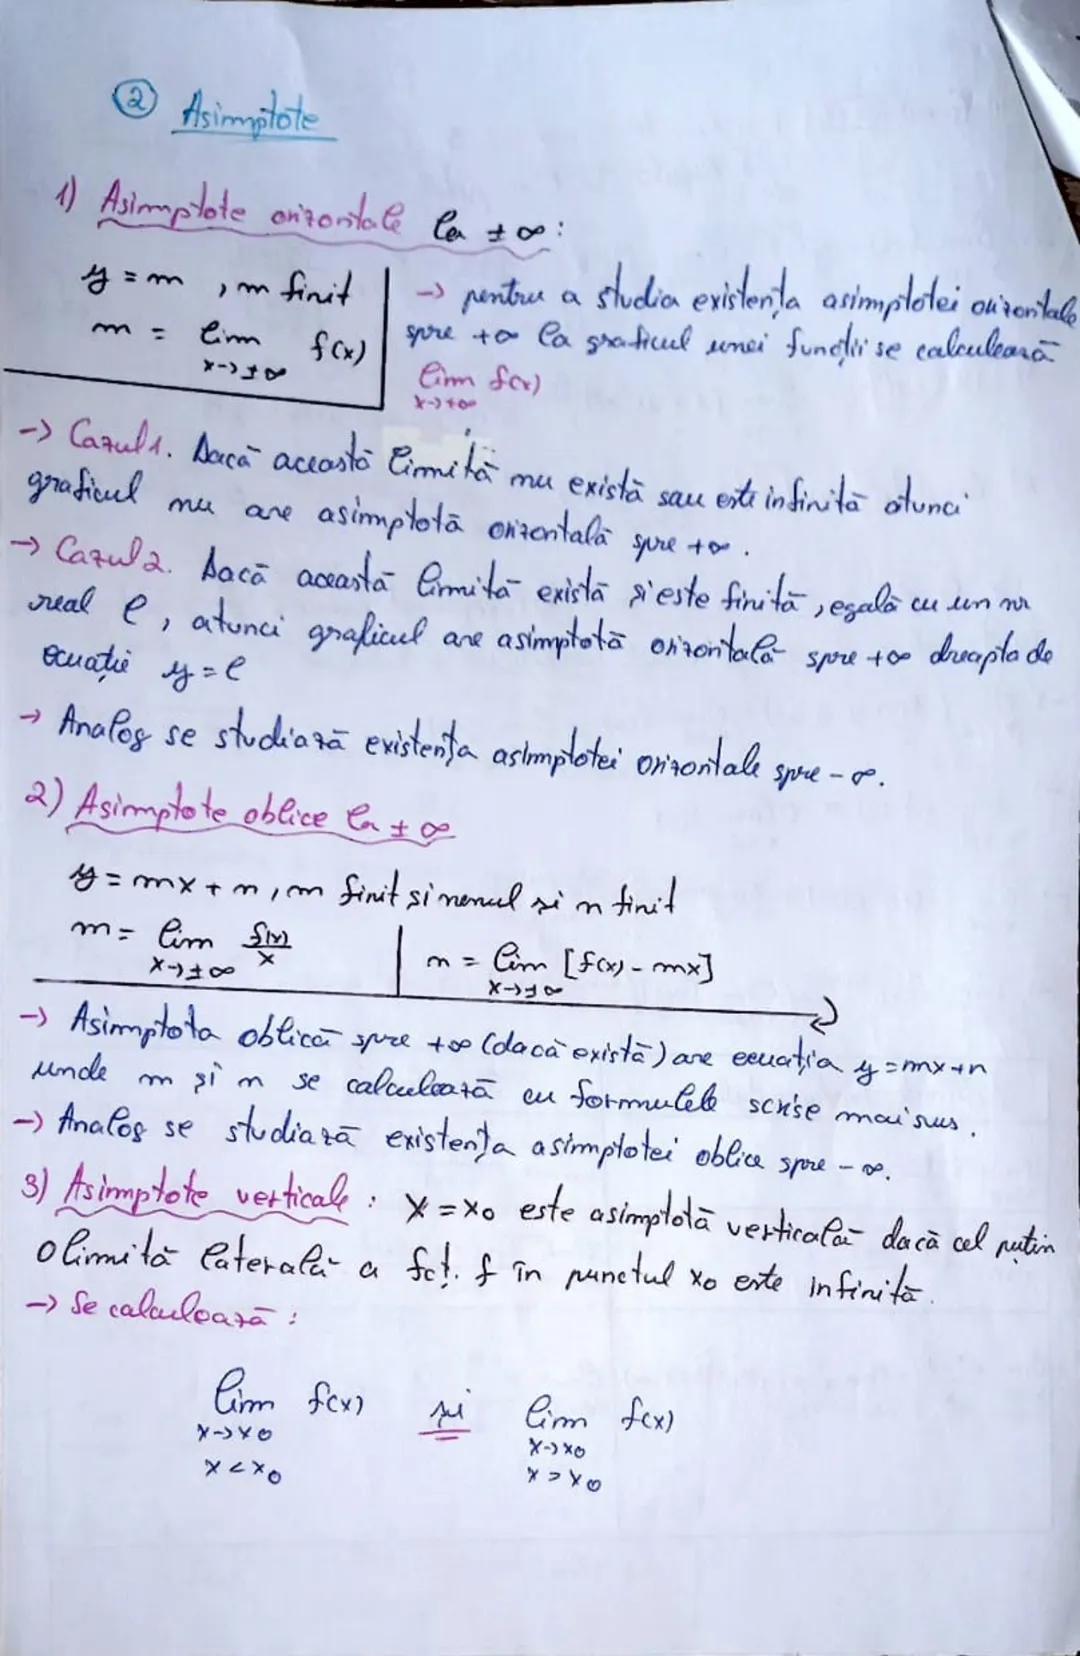 ② Asimptote
1) Asimptote orizontale la ±∞:
y = m , m finit
m = lim f(x)
x->±∞
-> pentru a studia existența asimptotei orizontale
spre +∞ la graficul unei funcții se calculează
lim f(x)
x->+∞
-> Cazul 1. Dacă această limită nu există sau este infinită atunci
graficul nu are asimptotă orizontală spre +∞.
-> Cazul 2. Dacă această limită există și este finită, egală cu un nr
real l, atunci graficul are asimptotă orizontală spre +∞ dreapta de
ecuație y = l
-> Analog se studiază existența asimptotei orizontale spre -∞.
2) Asimptote oblice la ±∞
y = mx + n, m finit și nenul și n finit
m = lim f(x)/x
x->±∞
n = lim [f(x) - mx]
x->±∞
-> Asimptota oblică spre +∞ (dacă există) are ecuația y = mx+n
unde m și n se calculează cu formulele scrise mai sus.
-> Analog se studiază existența asimptotei oblice spre -∞.
3) Asimptote verticale : x = x₀ este asimptotă verticală dacă cel puțin
o limită laterală a fcț. f în punctul x₀ este infinită.
-> Se calculează :
lim f(x) și lim f(x)
x->x₀ x->x₀
x<x₀ x>x₀